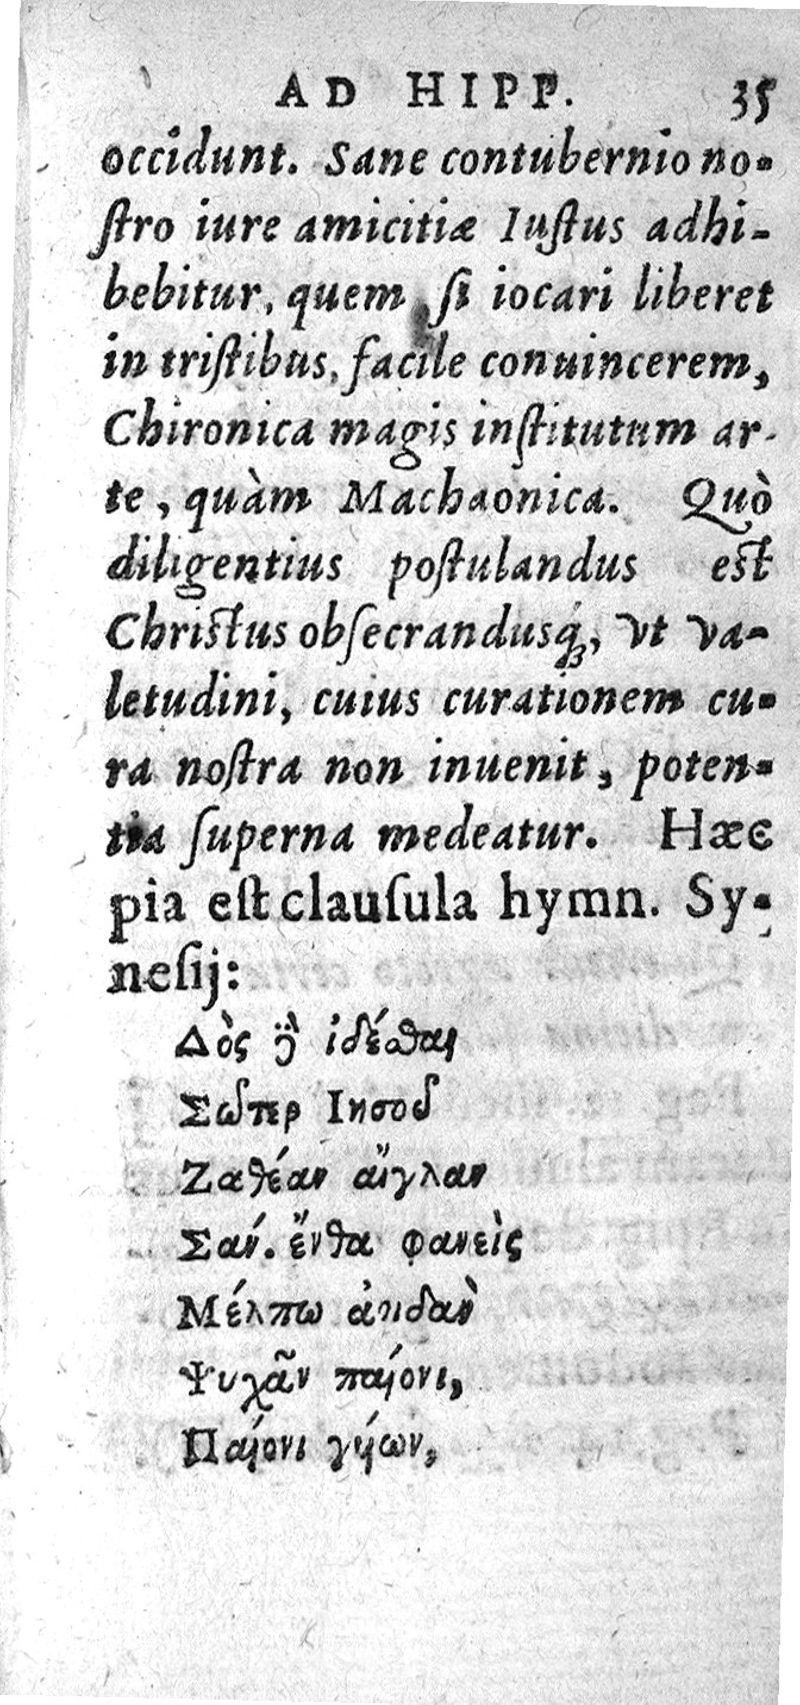 AD HIPP. 35
occidunt. Sane contubernio no-
ſtro iure amicitiæ Iuſtus adhi-
bebitur, quem ſi iocari liberet
in triſtibus, facile conuincerem,
Chironica magis inſtitutum ar-
te, quàm Machaonica. Quò
diligentius poſtulandus est
Christus obſecrandusq́;, vt va-
letudini, cuius curationem cu-
ra noſtra non inuenit, poten-
tia ſuperna medeatur. Hæc
pia eſt clauſula hymn. Sy-
neſij:
Δὸς ϗ̀ ἰδέσθαι
Σῶπερ Ιησοῦ
Ζαθέαν αἴγλαν
Σαν́. ἔνθα φανεὶς
Μέλπω ἀηδαν̀
Ψυχᾶν παίονι,
Παίονι γυίων,